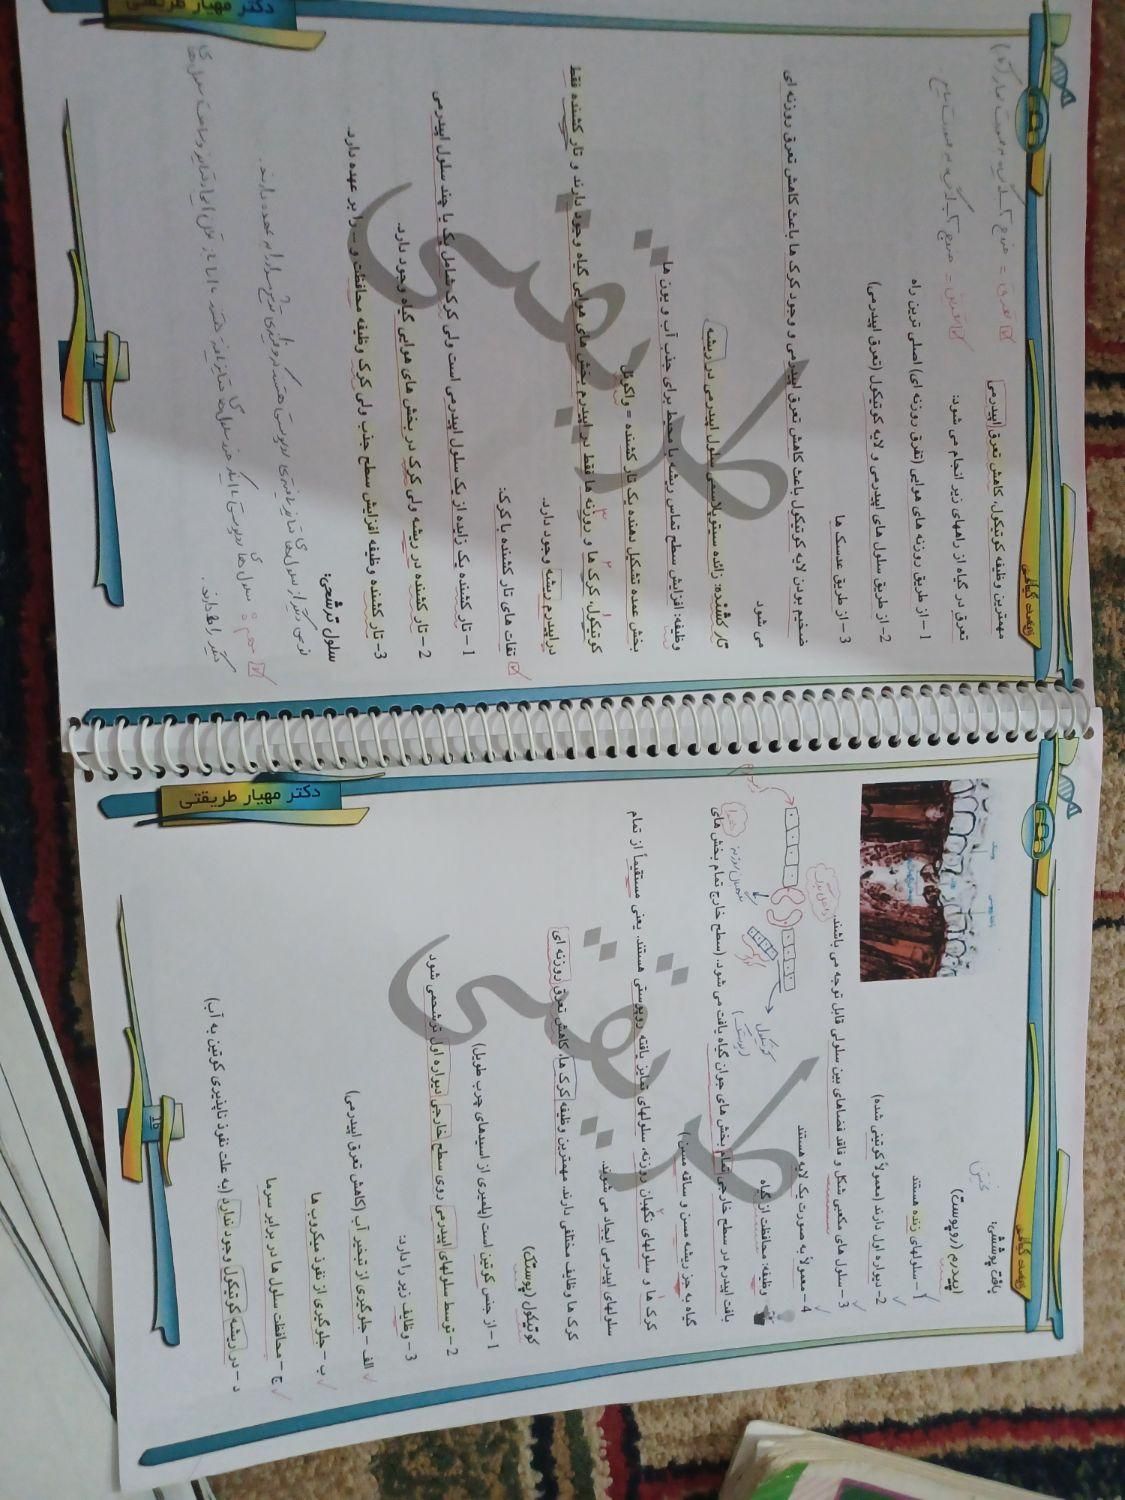 بافت پوششی:
اپیدرم (روپوست)
1- سلولهای زنده هستند
2- دیواره اول دارند (معمولاً کوتینی شده)
3- سلول های مکعبی شکل و فاقد فضاهای بین سلولی قابل توجه می باشند.
4- معمولاً به صورت یک لایه هستند
وظیفه: محافظت از گیاه
بافت اپیدرم در سطح خارجی تمام بخش های جوان گیاه یافت می شود. (سطح خارج تمام بخش های
گیاه به جز ریشه مسن و ساقه مسن)
کرک ها و سلولهای نگهبان روزنه، سلولهای تمایز یافته روپوستی هستند. یعنی مستقیماً از تمام
سلولهای اپیدرمی ایجاد می شوند.
کرک ها وظایف مختلفی دارند. مهمترین وظیفه کرک ها، کاهش تعرق روزنه ای
کوتیکول (پوستک)
1- از جنس کوتین است (پلیمری از اسیدهای چرب طویل)
2- توسط سلولهای اپیدرمی روی سطح خارجی دیواره اول ترشحمی شود
3- وظایف زیر را دارد:
الف- جلوگیری از تبخیر آب (کاهش تعرق اپیدرمی)
ب- جلوگیری از نفوذ میکروب ها
ج- محافظت سلول ها در برابر سرما
د- در ریشه کوتیکول وجود ندارد (به علت نفوذ ناپذیری کوتین به آب)
کوتیکول
(پوستک)
16
دکتر مهیار طریقتی
طریقتی
مهمترین وظیفه کوتیکول، کاهش تعرق اپیدرمی
تعرق در گیاه از راههای زیر انجام می شود:
1- از طریق روزنه های هوایی (تفرق روزنه ای) اصلی ترین راه
2- از طریق سلول های اپیدرمی و لایه کوتیکول (تعرق اپیدرمی)
3- از طریق عدسک ها
ضخیم بودن لایه کوتیکول باعث کاهش تعرق اپیدرمی و وجود کرک ها باعث کاهش تعرق روزنه ای
می شود
تار کشنده: زائده سیتوپلاسمی سلول اپیدرمی در ریشه
وظیفه: افزایش سطح تماس ریشه با محیط برای جذب آب و یون ها
بخش عمده تشکیل دهنده یک تار کشنده = واکوئل
کوتیکول، کرک ها و روزنه ها فقط در اپیدرم بخش های هوایی گیاه وجود دارند و تار کشنده فقط
دراپیدرم ریشه وجود دارد.
تفات های تار کشنده با کرک:
1- تار کشنده یک زایده از یک سلول اپیدرمی است ولی کرک شامل یک یا چند سلول اپیدرمی
2- تار کشنده در ریشه ولی کرک در بخش های هوایی گیاه وجود دارد.
3- تار کشنده وظیفه افزایش سطح جذب ولی کرک وظیفه محافظت و ... را بر عهده دارد.
سلول ترشحی:
17
دکتر مهیار طریقتی
طریقتی